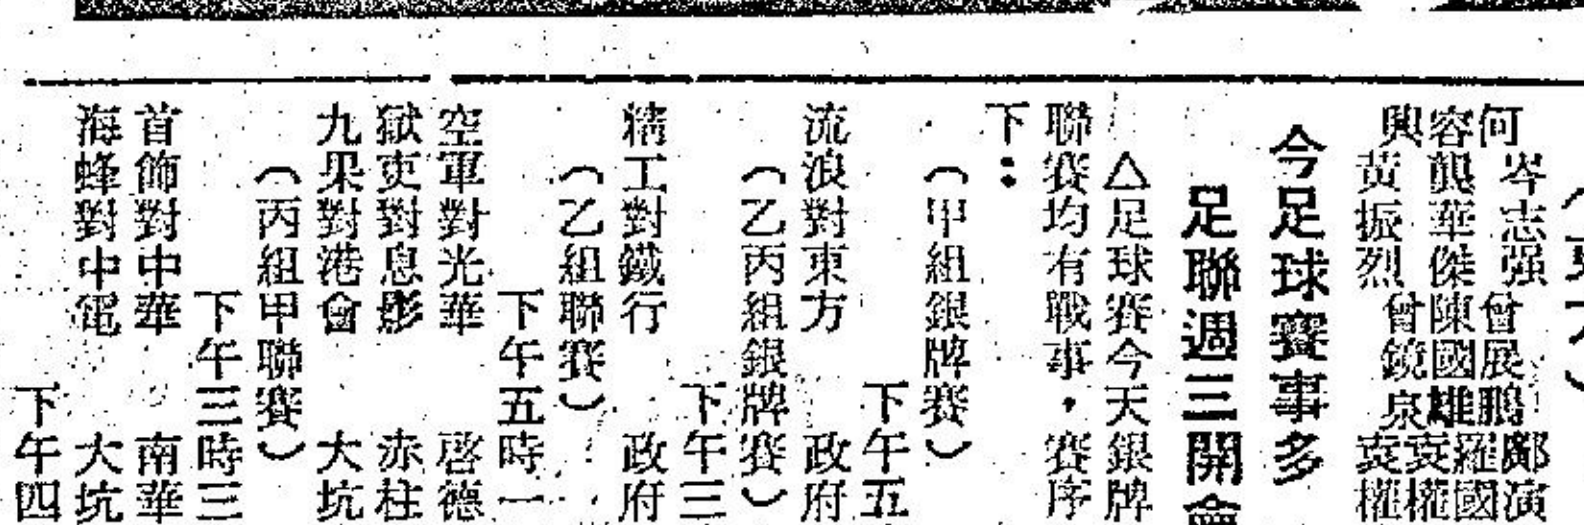 何岑志强 曾展鵬 鄺演
容龔華傑 陳國雄 羅國
興黃振烈 曾鏡泉 袁權
今足球賽事多
足聯週三開會
△足球賽今天銀牌
聯賽均有戰事，賽序
下：
（甲組銀牌賽）
下午五
流浪對東方 政府
（乙丙組銀牌賽）
下午三
精工對鐵行 政府
（乙組聯賽）
下午五時一
空軍對光華 啓德
獄吏對息影 赤柱
九果對港會 大坑
（丙組甲聯賽）
下午三時三
首飾對中華 南華
海蜂對中電 大坑
下午四